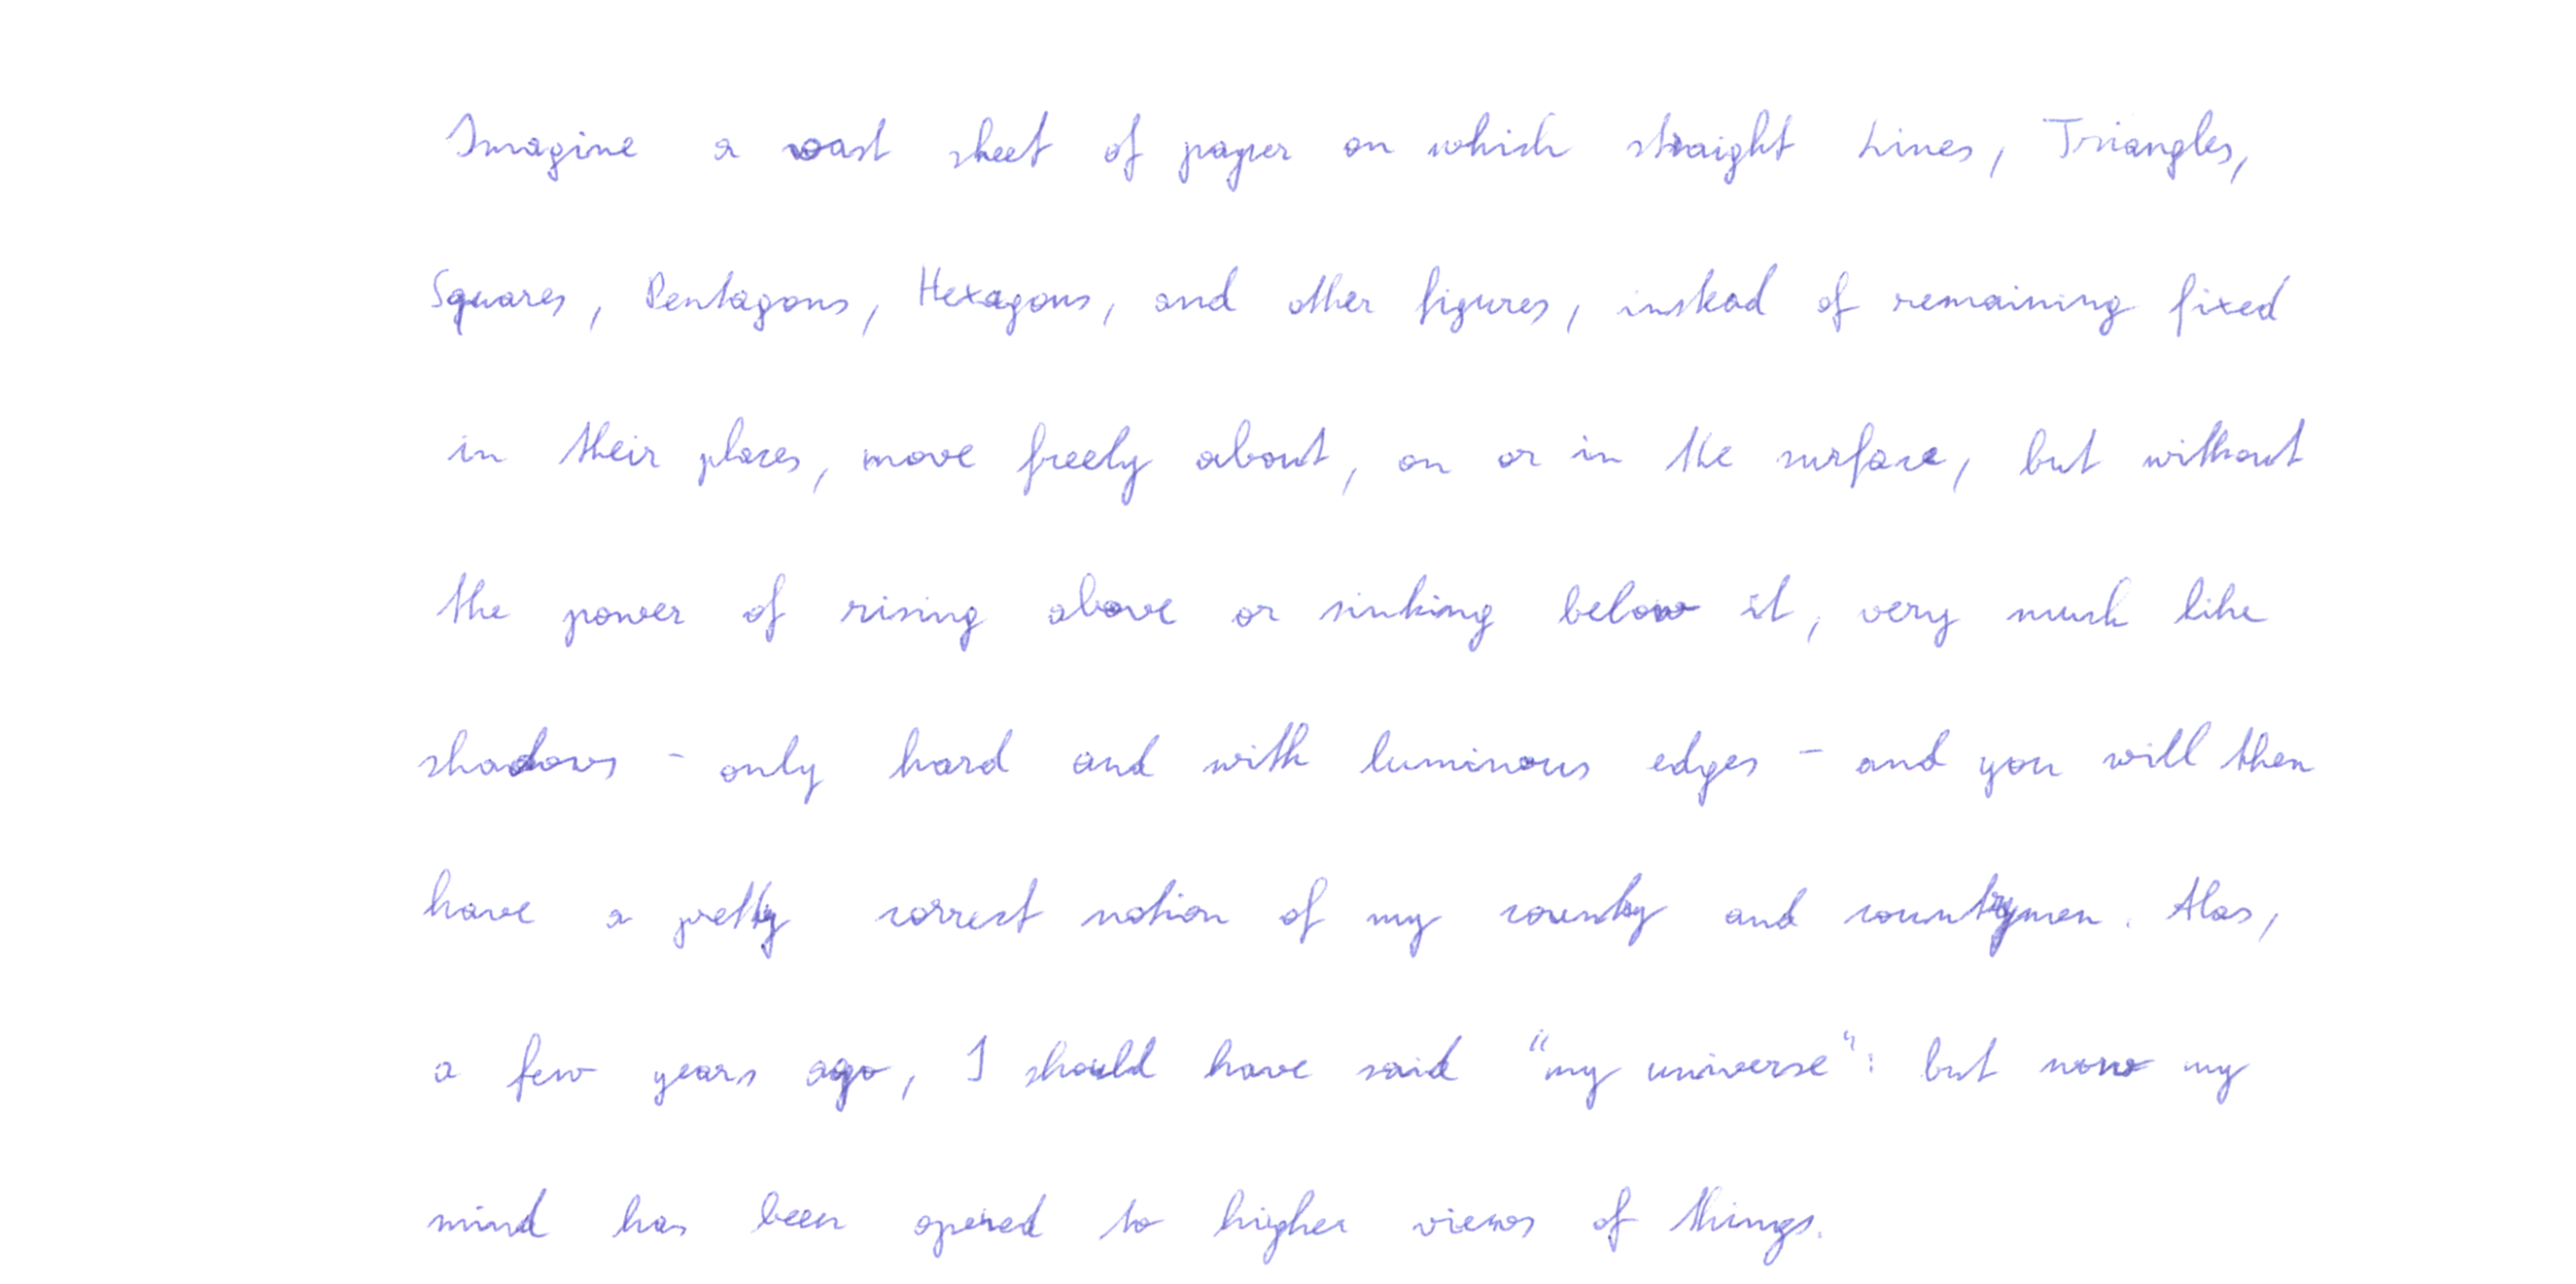 Imagine a vast sheet of paper on which straight Lines, Triangles,
Squares, Pentagons, Hexagons, and other figures, instead of remaining fixed
in their places, move freely about, on or in the surface, but without
the power of rising above or sinking below it, very much like
shadows - only hard and with luminous edges - and you will then
have a pretty correct notion of my country and countrymen. Alas,
a few years ago, I should have said "my universe": but now my
mind has been opened to higher views of things.